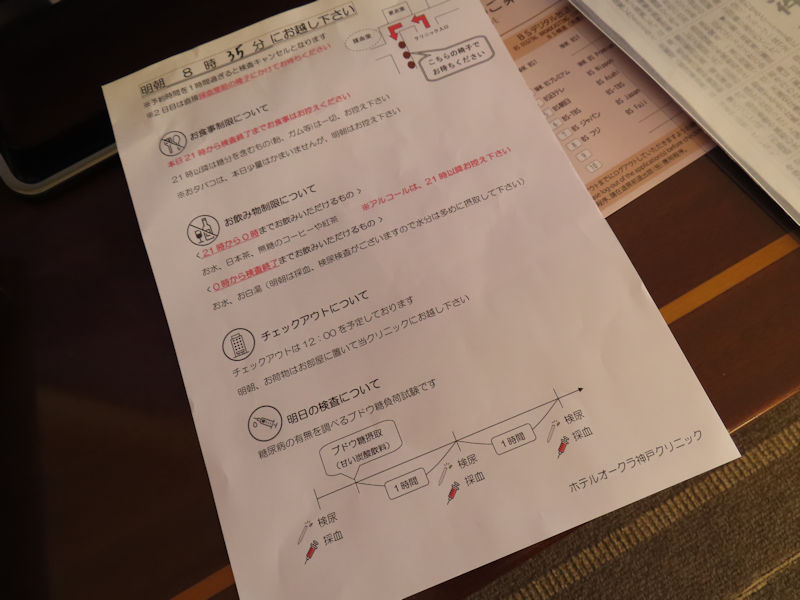 明朝 8 時 35 分 にお越し下さい
※予約時間を1時間過ぎると検査キャンセルとなります
※2日目は直接採血室前の椅子にかけてお待ち下さい
採血室
クリニック入口
こちらの椅子で
お待ちください
お食事制限について
本日21時から検査終了までお食事はお控えください
21時以降は糖分を含むもの(飴、ガム等)は一切、お控え下さい
※おタバコは、本日少量はかまいませんが、明朝はお控え下さい
お飲み物制限について
<21時から0時までお飲みいただけるもの>
※アルコールは、21時以降お控え下さい
お水、日本茶、無糖のコーヒーや紅茶
<0時から検査終了までお飲みいただけるもの>
お水、お白湯(明朝は採血、検尿検査がございますので水分は多めに摂取して下さい)
チェックアウトについて
チェックアウトは12:00を予定しております
明朝、お荷物はお部屋に置いて当クリニックにお越し下さい
明日の検査について
糖尿病の有無を調べるブドウ糖負荷試験です
ブドウ糖摂取
(甘い炭酸飲料)
1時間
1時間
検尿
採血
検尿
採血
検尿
採血
ホテルオークラ神戸クリニック
BSデジタル
BS日テレ
BS朝日
BS-TBS
BSジャパン
BSフジ
BS Asahi
BS-TBS
BS Japan
BS Fuji
7
8
9
10